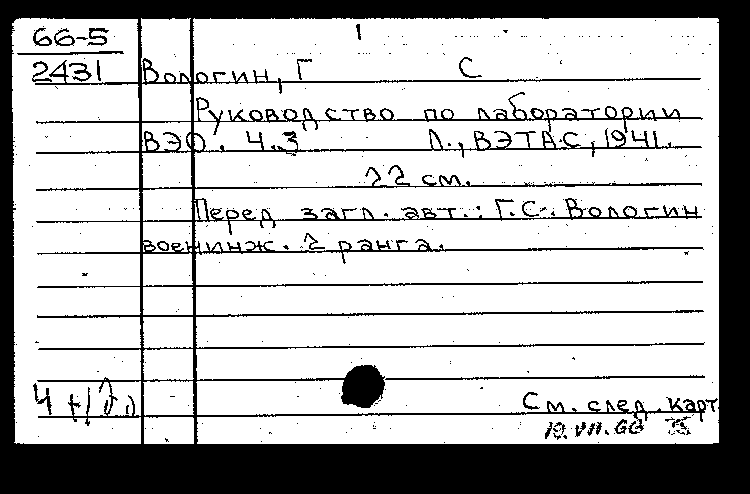 1
66-5
2431 Вологин, Г С
Руководство по лаборатории
ВЭО. Ч.3 Л., ВЭТАС, 1941.
22 см.
Перед загл. авт.: Г.С. Вологин
военинж. 2 ранга.
Ч
См. след. карт
19.VII.66